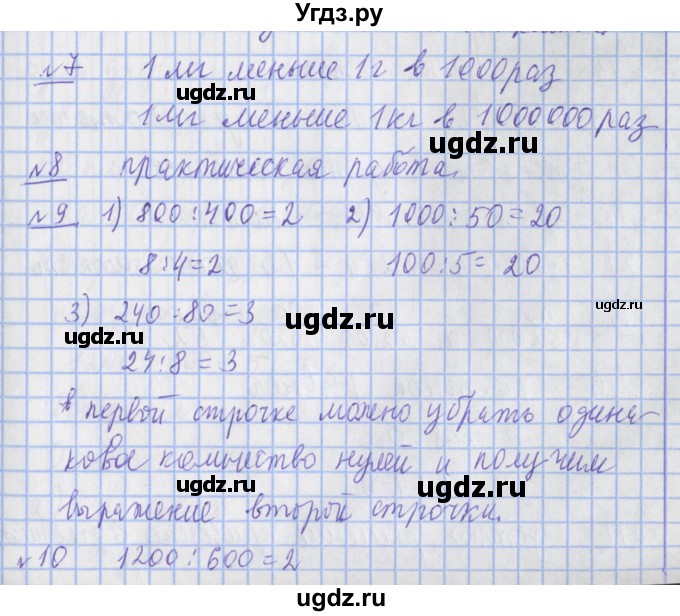 Угдз.ру
№7 1 мг меньше 1г в 1000 раз
ugdz.ru
1 мг меньше 1кг в 1000000 раз
ugdz.ru
№8 практическая работа.
№9 1) 800:400=2 2) 1000:50=20
ugdz.ru
8:4=2 100:5= 20
ugdz.ru
3) 240:80=3
ugdz.ru
ugdz.ru
24:8=3
ugdz.ru
В первой строчке можно убрать одина-
ковое количество нулей и получим
ugdz.ru
ugdz.ru
выражение второй строчки.
ugdz.ru
№10 1200:600=2
ugdz.ru